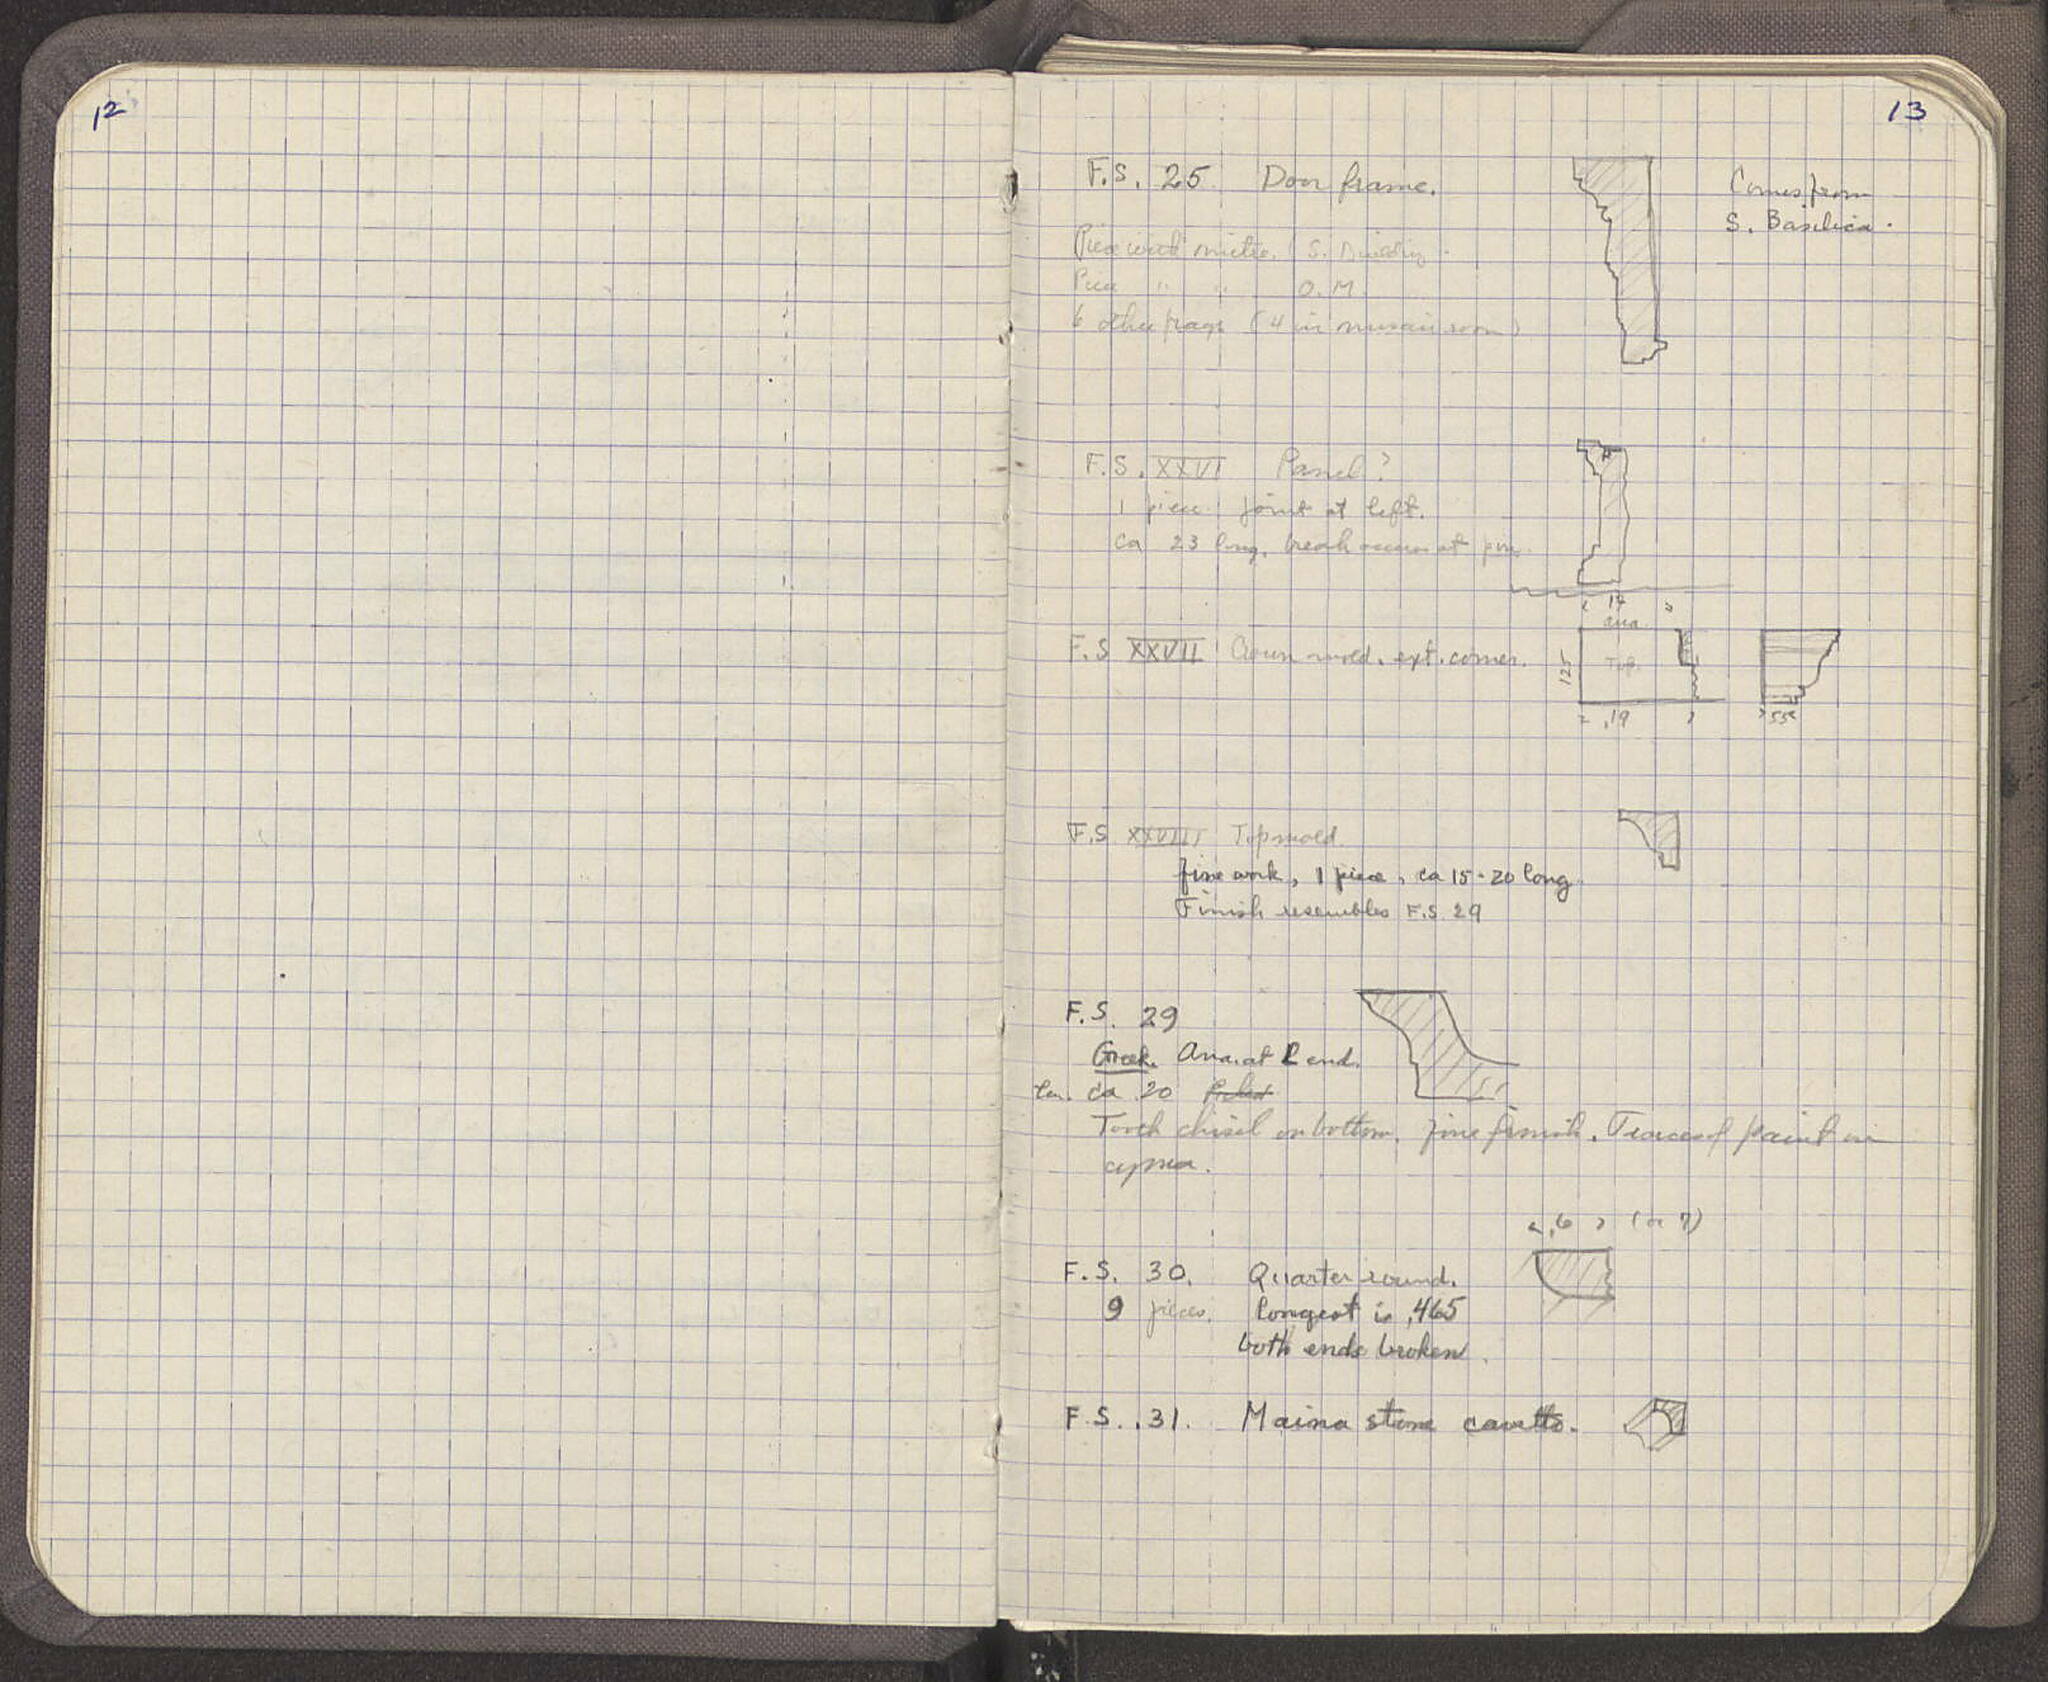 12
13
F.S. 25 Door frame.
Comes from
S. Basilica.
Piece with mitre. S. Building.
Piece " " O.M.
6 other frags (4 in mosaic room)
F.S. XXVI Panel?
1 piece joint at left.
Ca 23 long, break occurs at
17
ana.
F.S XXVII Crown mold. ext. corner.
125
Top.
.19
55
F.S XXVIII Top mold.
fine work, 1 piece, ca 15-20 long.
Finish resembles F.S. 29
F.S. 29
Greek. Ana. at L end.
Len. ca 20
Tooth chisel on bottom, fine finish. Traces of paint on
cyma.
.6 (or 7)
F.S. 30. Quarter round.
9 pieces. longest is .465
both ends broken.
F.S. .31. Maina stone cavetto.